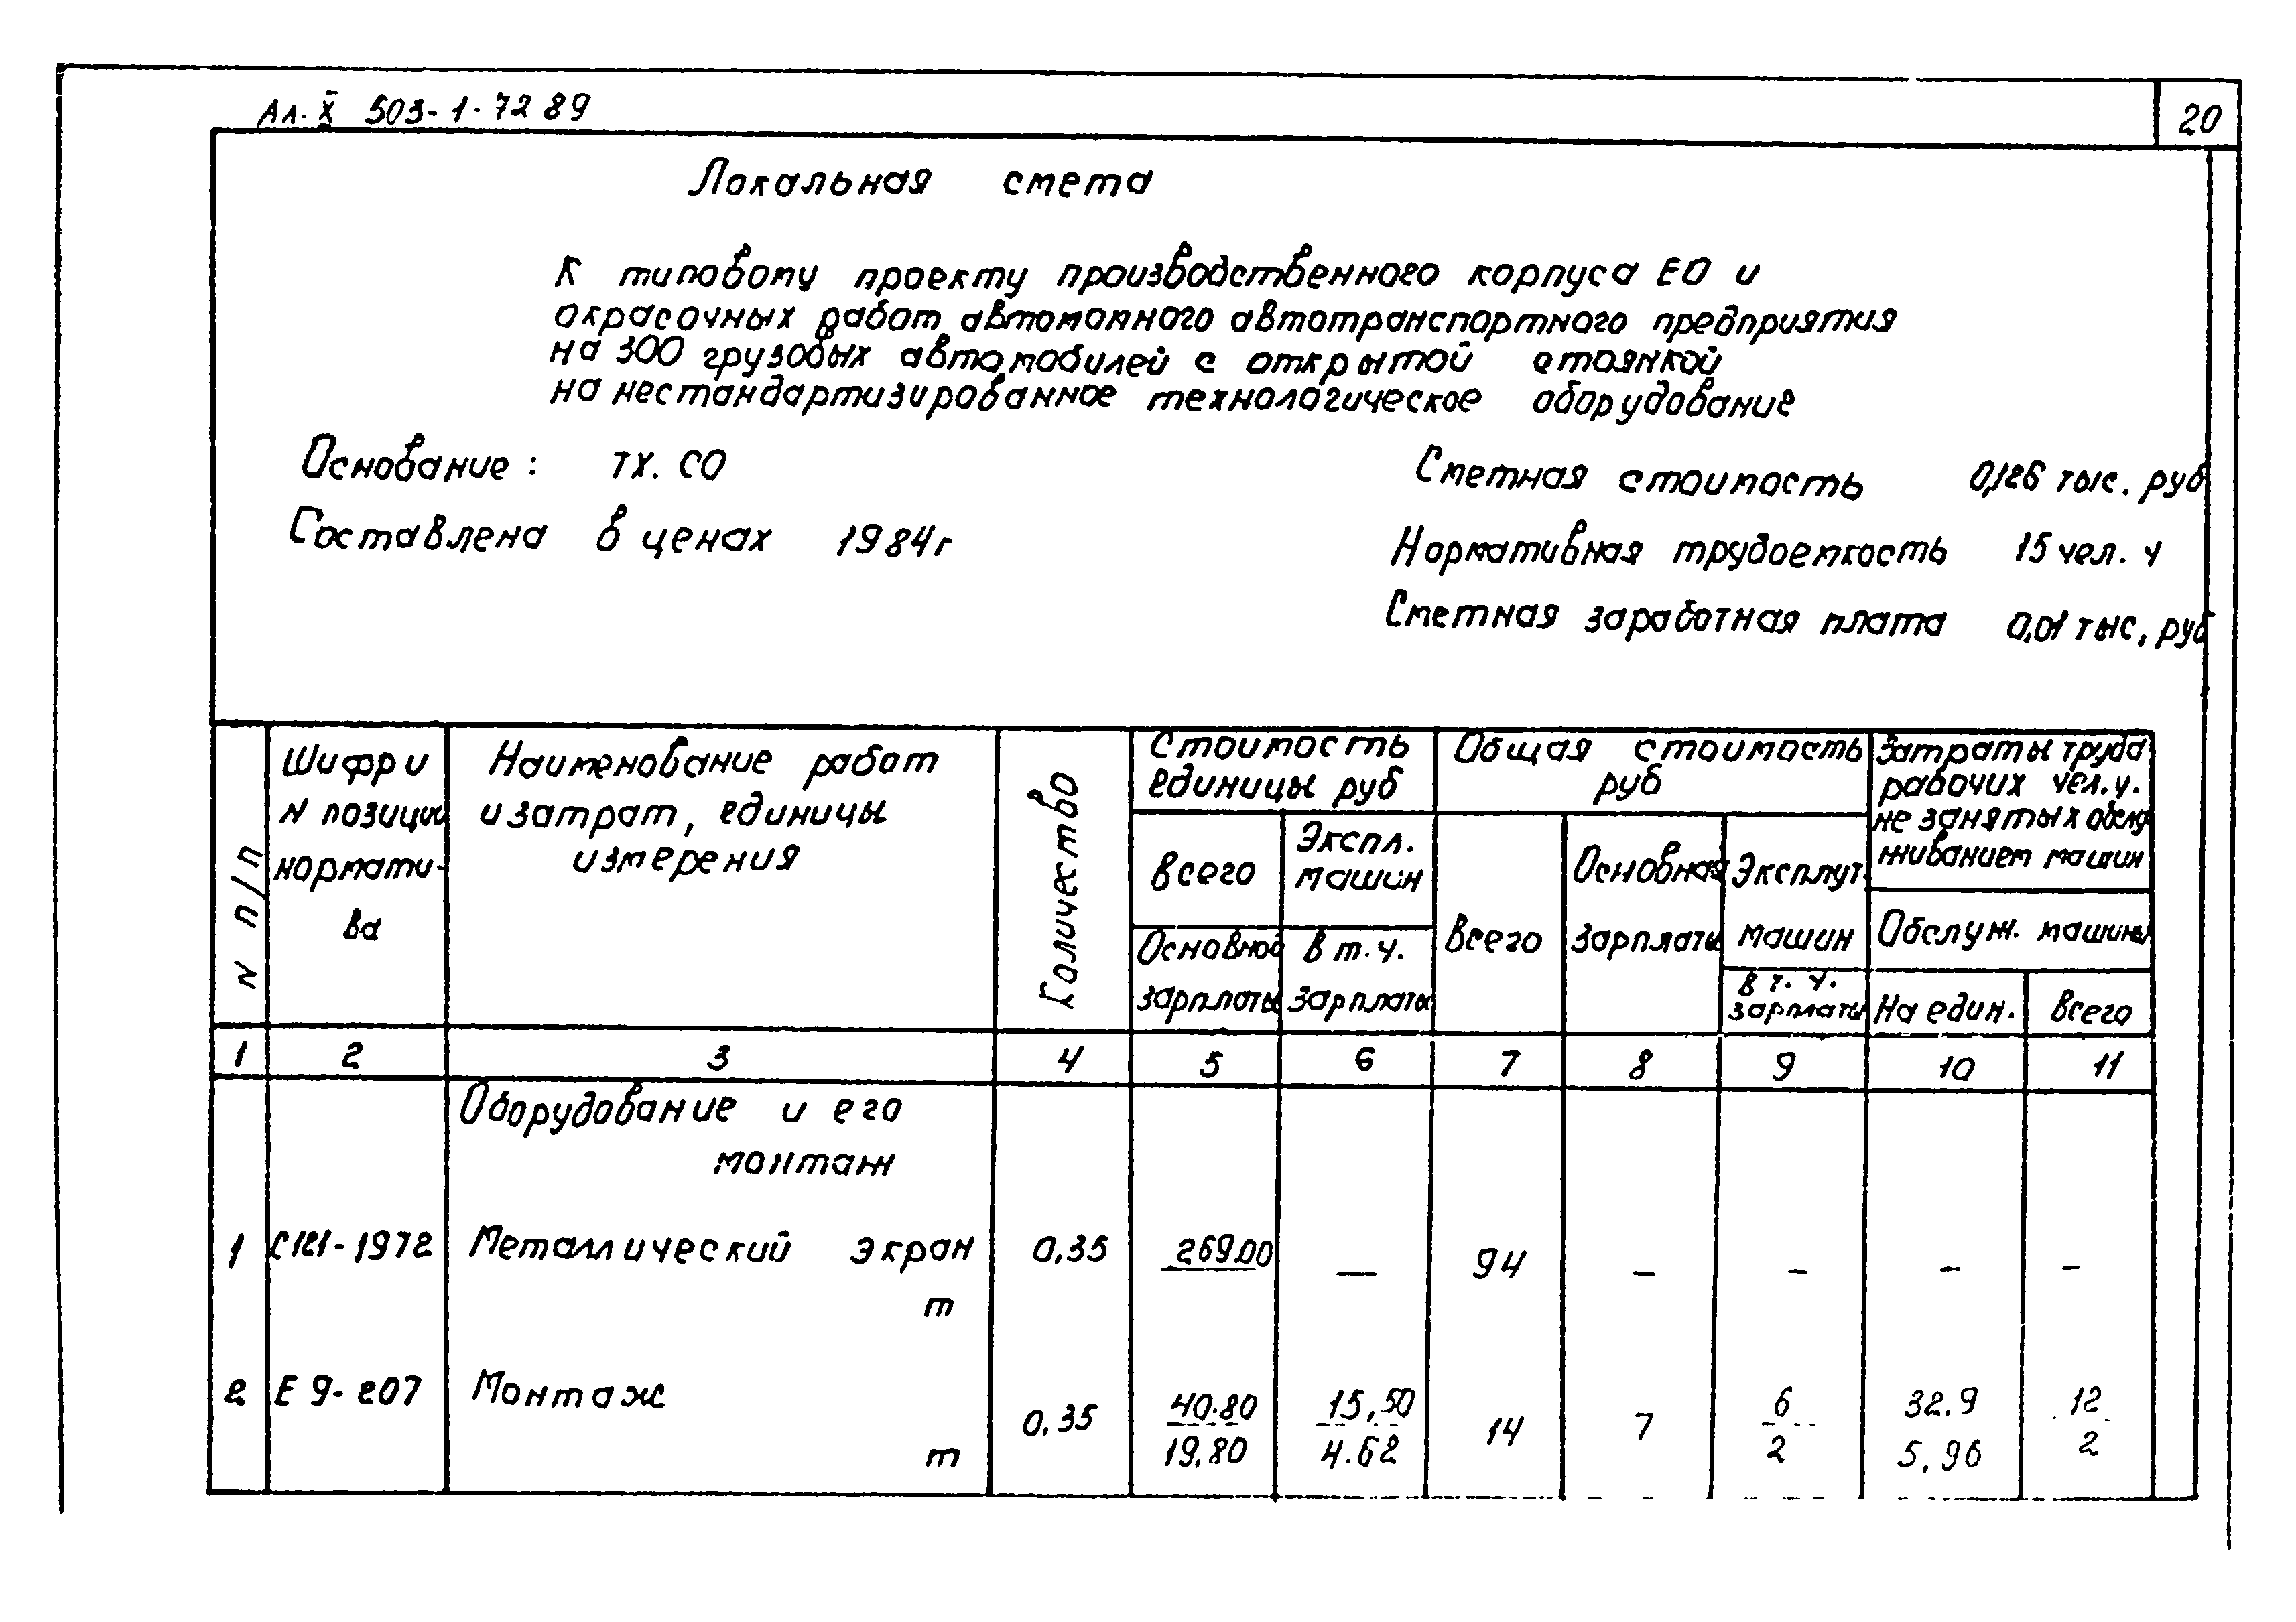 Ал. X 503-1-72 89
20
Локальная смета
К типовому проекту производственного корпуса ЕО и
окрасочных работ автономного автотранспортного предприятия
на 300 грузовых автомобилей с открытой стоянкой
на нестандартизированное технологическое оборудование
Основание: ТХ. СО
Составлена в ценах 1984г
Сметная стоимость 0,126 тыс. руб
Нормативная трудоемкость 15 чел. ч
Сметная заработная плата 0,01 тыс, руб
N п/п
Шифр и
N позиции
нормати-
ва
Наименование работ
и затрат, единицы
измерения
Количество
Стоимость
единицы руб
Всего
Экспл.
машин
Основной
зарплаты
В т.ч.
зарплаты
Общая стоимость
руб
Всего
Основная
зарплаты
Эксплут.
машин
В т. ч.
зарплаты
Затраты труда
рабочих чел.ч.
не занятых обслу
живанием машин
Обслуж. машины
На един.
Всего
1 2 3 4 5 6 7 8 9 10 11
Оборудование и его
монтаж
1 С121-1972 Металлический экран 0,35 269.00 — 94 – – – –
т
2 Е 9-207 Монтаж 0,35 40.80 15,50 14 7 6 32.9 12
т 19,80 4.62 2 5,96 2